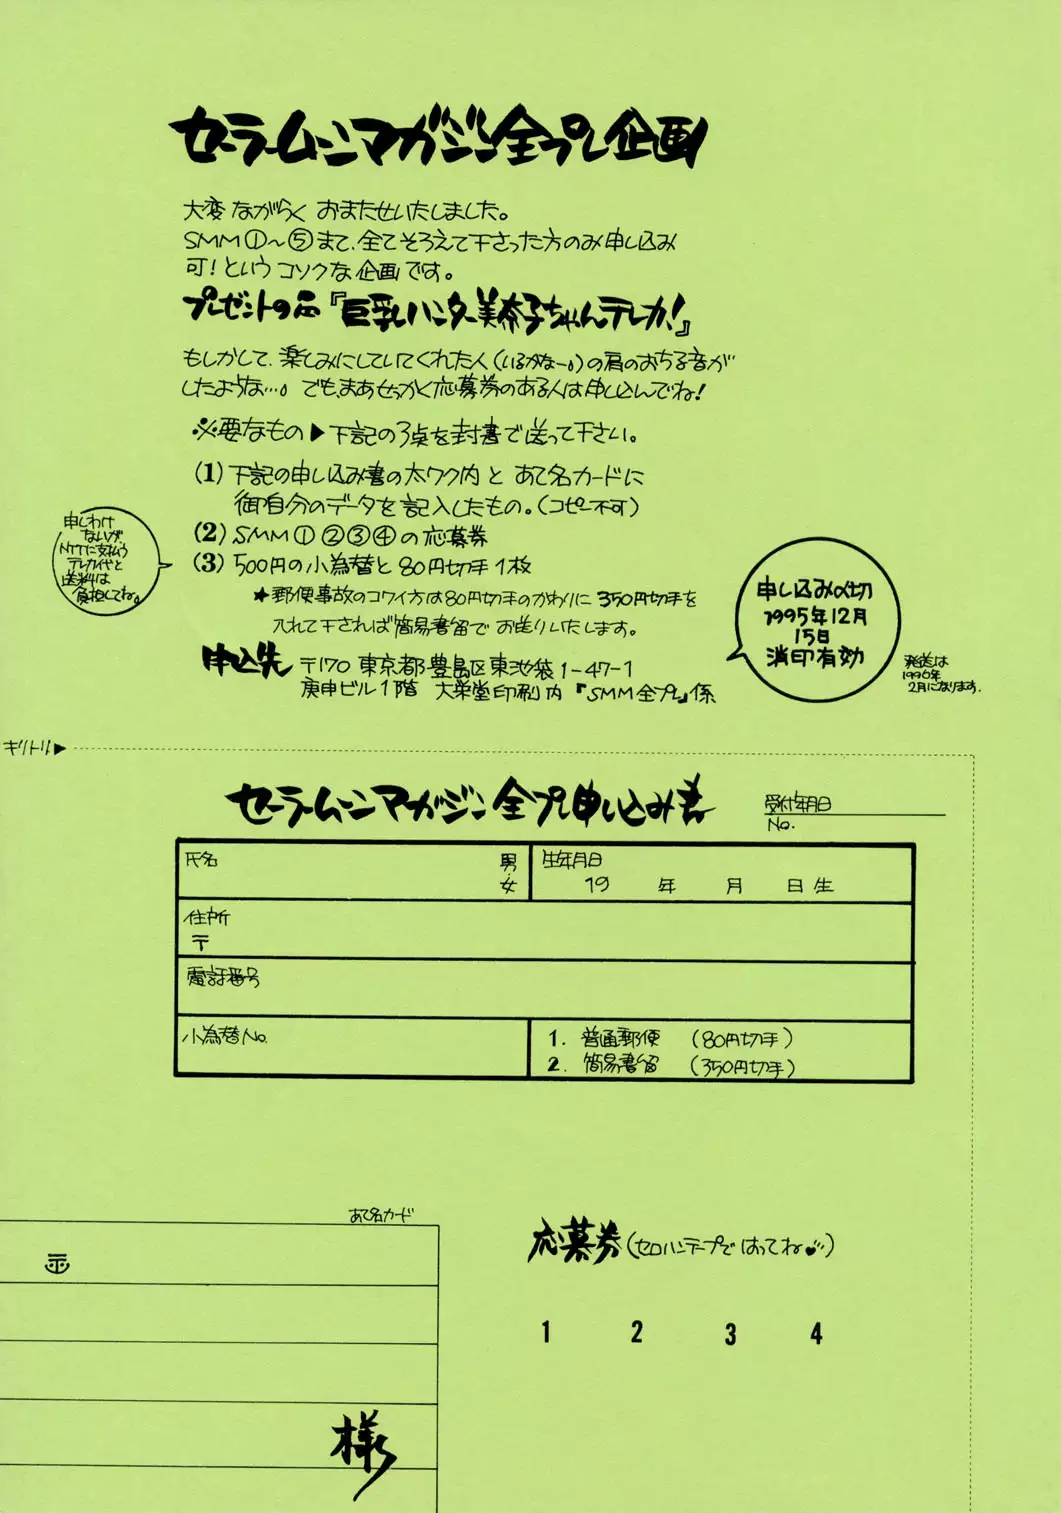 セーラームーンマガジン全プレ企画
大変ながらくおまたせいたしました。
SMM①〜⑤まで、全てそろえて下さった方のみ申し込み
可！というコソクな企画です。
プレゼントの品『巨乳ハンター美奈子ちゃんテレカ！』
もしかして、楽しみにしていてくれた人（いるかなー。）の肩のおちる音が
したような…。でも、まあせっかく応募券のある人は申し込んでね！
※要なもの▶下記の3点を封書で送って下さい。
(1) 下記の申し込み書の太ワク内とあて名カードに
御自分のデータを記入したもの。（コピー不可）
(2) SMM①②③④の応募券
(3) 500円の小為替と80円切手1枚
★郵便事故のコワイ方は80円切手のかわりに350円切手を
入れて下されば簡易書留でお送りいたします。
申しわけ
ないが、
NTTに支払う
テレカ代と
送料は
負担してね。
申し込み〆切
1995年12月
15日
消印有効
発送は
1996年
2月になります。
申込先 〒170 東京都豊島区東池袋1-47-1
庚申ビル1階 大栄堂印刷内『SMM全プレ』係
キリトリ▶
セーラームーンマガジン全プレ申し込み書
受付年月日
No.
氏名 男・女
生年月日
19 年 月 日生
住所
〒
電話番号
小為替No.
1. 普通郵便 （80円切手）
2. 簡易書留 （350円切手）
あて名カード
〒
様
応募券（セロハンテープではってね♥）
1 2 3 4